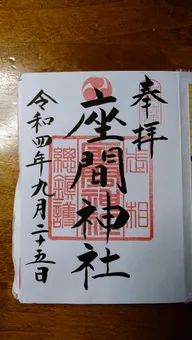 奉拝
座間神社
令和四年九月二十五日